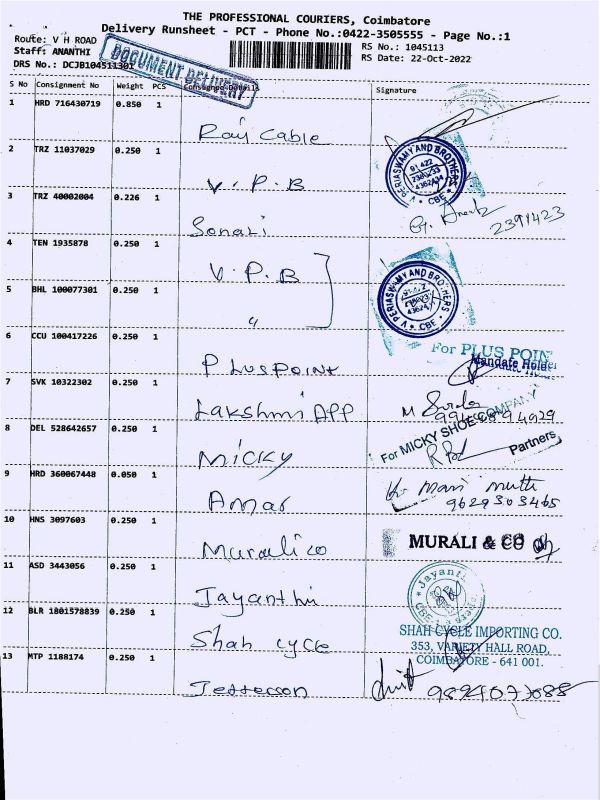 THE PROFESSIONAL COURIERS, Coimbatore
Delivery Runsheet - PCT - Phone No.:0422-3505555 - Page No.:1
Route: V H ROAD
Staff: ANANTHI
DRS No.: DCJB104511301
DOCUMENT DELIVERY
RS No.: 1045113
RS Date: 22-Oct-2022
S No Consignment No Weight PCS Consignee Details Signature
1 HRD 716430719 0.850 1 Raj Cable
2 TRZ 11037029 0.250 1 V.P.B
V PERIASWAMY AND BROTHERS * CBE *
3 TRZ 40002004 0.226 1 Sonali 2391423
4 TEN 1935878 0.250 1 V.P.B
V PERIASWAMY AND BROTHERS * CBE *
5 BHL 100077301 0.250 1 "
6 CCU 100417226 0.250 1 PLUSPOINT
For PLUS POINT
Mandate Holder
7 SVK 10322302 0.250 1 Lakshmi APP
8 DEL 528642657 0.250 1 MICKY
For MICKY SHOE COMPANY
Partners
9 HRD 360067448 0.050 1 Amar
Mari Muthu
9629303465
10 HNS 3097603 0.250 1 Murali co
MURALI & CO
11 ASD 3443056 0.250 1 Jayanthi
Jayanti
CBE
12 BLR 1801578839 0.250 1 Shah cycle
SHAH CYCLE IMPORTING CO.
353, VARIETY HALL ROAD,
COIMBATORE - 641 001.
13 MTP 1188174 0.250 1 Jefferson